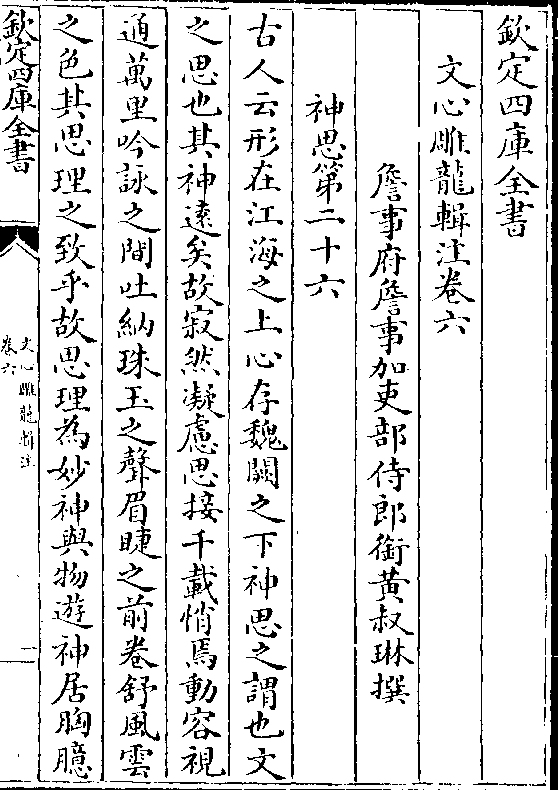 欽定四庫全書
文心雕龍輯注卷六
詹事府詹事加吏部侍郎銜黃叔琳撰
神思第二十六
古人云形在江海之上心存魏闕之下神思之謂也文
之思也其神遠矣故寂然凝慮思接千載悄焉動容視
通萬里吟詠之間吐納珠玉之聲眉睫之前卷舒風雲
之色其思理之致乎故思理為妙神與物遊神居胸臆
欽定四庫全書
文心雕龍輯注
卷六
一